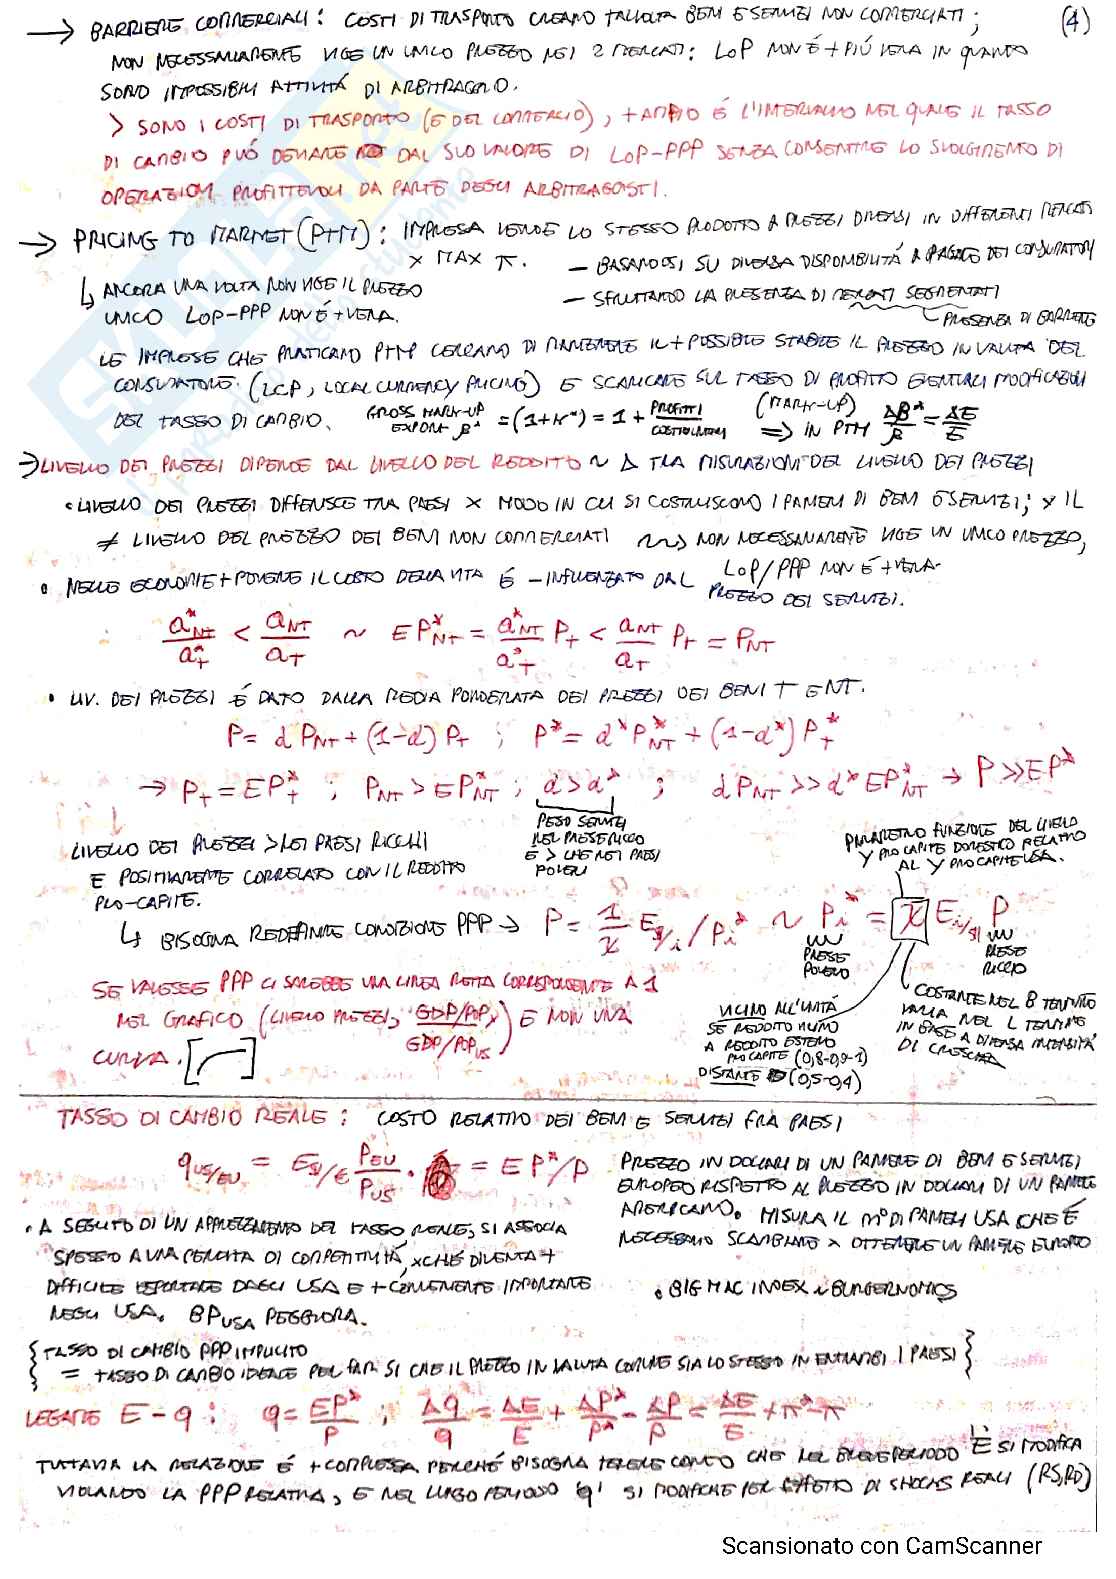 → BARRIERE COMMERCIALI: COSTI DI TRASPORTO CREANO TALVOLTA BENI E SERVIZI NON COMMERCIATI; (4)
NON NECESSARIAMENTE VIGE UN UNICO PREZZO NEI 2 MERCATI: LOP NON É + PIÚ VERA IN QUANTO
SONO IMPOSSIBILI ATTIVITÁ DI ARBITRAGGIO.
> SONO I COSTI DI TRASPORTO (E DEL COMMERCIO), + AMPIO É L'INTERVALLO NEL QUALE IL TASSO
DI CAMBIO PUÓ DEVIARE DAL SUO VALORE DI LOP-PPP SENZA CONSENTIRE LO SVOLGIMENTO DI
OPERAZIONI PROFITTEVOLI DA PARTE DEGLI ARBITRAGGISTI.
→ PRICING TO MARKET (PTM): IMPRESA VENDE LO STESSO PRODOTTO A PREZZI DIVERSI IN DIFFERENTI MERCATI
x MAX π. – BASANDOSI SU DIVERSA DISPONIBILITÁ A PAGARE DEI CONSUMATORI
↳ ANCORA UNA VOLTA NON VIGE IL PREZZO – SFRUTTANDO LA PRESENZA DI MERCATI SEGMENTATI
UNICO LOP-PPP NON É + VERA. PRESENZA DI BARRIERE
LE IMPRESE CHE PRATICANO PTM CERCANO DI MANTENERE IL + POSSIBILE STABILE IL PREZZO IN VALUTA DEL
CONSUMATORE (LCP, LOCAL CURRENCY PRICING) E SCARICARE SUL TASSO DI PROFITTO EVENTUALI MODIFICAZIONI
DEL TASSO DI CAMBIO. GROSS MARK-UP EXPORT β* = (1+k*) = 1 + PROFITTI/COSTO UNITARIO (MARK-UP) ⇒ IN PTM Δβ*/β = ΔE/E
→ LIVELLO DEI PREZZI DIPENDE DAL LIVELLO DEL REDDITO ~ Δ TRA MISURAZIONI DEL LIVELLO DEI PREZZI
• LIVELLO DEI PREZZI DIFFERISCE TRA PAESI x MODO IN CUI SI COSTRUISCONO I PANIERI DI BENI E SERVIZI; x IL
≠ LIVELLO DEL PREZZO DEI BENI NON COMMERCIATI ~> NON NECESSARIAMENTE VIGE UN UNICO PREZZO,
LOP/PPP NON É + VERA.
• NELLE ECONOMIE + POVERE IL COSTO DELLA VITA É – INFLUENZATO DAL PREZZO DEI SERVIZI.
a*NT/a*T < aNT/aT ~ EP*NT = a*NT/a*T PT < aNT/aT PT = PNT
• LIV. DEI PREZZI É DATO DALLA MEDIA PONDERATA DEI PREZZI DEI BENI T E NT.
P = αPNT + (1-α)PT ; P* = α*P*NT + (1-α*)P*T
→ PT = EP*T ; PNT > EP*NT ; α > α* ; αPNT >> α*EP*NT → P >> EP*
PESO SERVIZI
NEL PAESE RICCO
E > CHE NEI PAESI
POVERI
LIVELLO DEI PREZZI > NEI PAESI RICCHI
E POSITIVAMENTE CORRELATO CON IL REDDITO
PRO-CAPITE.
PARAMETRO FUNZIONE DEL LIVELLO
Y PRO CAPITE DOMESTICO RELATIVO
AL Y PRO CAPITE USA.
↳ BISOGNA REDEFINIRE CONDIZIONE PPP → P = 1/χ E$/i / Pi* ~ Pi* = χ Ei/$ P
PAESE POVERO
PAESE RICCO
SE VALESSE PPP CI SAREBBE UNA LINEA RETTA CORRISPONDENTE A 1
NEL GRAFICO (LIVELLO PREZZI, GDP/POP / GDP/POPUS) E NON UNA
CURVA.
VICINO ALL'UNITÁ
SE REDDITO VICINO
A REDDITO ESTERO
PRO CAPITE (0,8-0,9-1)
DISTANTE (0,5-0,4)
COSTANTE NEL B TERMINE
VARIA NEL L TERMINE
IN BASE A DIVERSA INTENSITÁ
DI CRESCITA
TASSO DI CAMBIO REALE: COSTO RELATIVO DEI BENI E SERVIZI FRA PAESI
qUS/EU = E$/€ PEU/PUS · = EP*/P
PREZZO IN DOLLARI DI UN PANIERE DI BENI E SERVIZI
EUROPEO RISPETTO AL PREZZO IN DOLLARI DI UN PANIERE
AMERICANO. MISURA IL N° DI PANIERI USA CHE É
NECESSARIO SCAMBIARE x OTTENERE UN PANIERE EUROPEO
• A SEGUITO DI UN APPREZZAMENTO DEL TASSO REALE, SI ASSOCIA
SPESSO A UNA PERDITA DI COMPETITIVITÁ, xCHÉ DIVENTA +
DIFFICILE ESPORTARE DAGLI USA E + CONVENIENTE IMPORTARE
NEGLI USA. BPUSA PEGGIORA.
• BIG MAC INDEX ~ BURGERNOMICS
{ TASSO DI CAMBIO PPP IMPLICITO
= TASSO DI CAMBIO IDEALE PER FAR SI CHE IL PREZZO IN VALUTA COMUNE SIA LO STESSO IN ENTRAMBI I PAESI }
LEGAME E-q: q = EP*/P ; Δq/q = ΔE/E + ΔP*/P* – ΔP/P = ΔE/E + π* – π
TUTTAVIA LA RELAZIONE É + COMPLESSA PERCHÉ BISOGNA TENERE CONTO CHE NEL BREVE PERIODO 'E' SI MODIFICA
VIOLANDO LA PPP RELATIVA, E NEL LUNGO PERIODO 'q' SI MODIFICHI PER EFFETTO DI SHOCKS REALI (RS,RD)
Scansionato con CamScanner